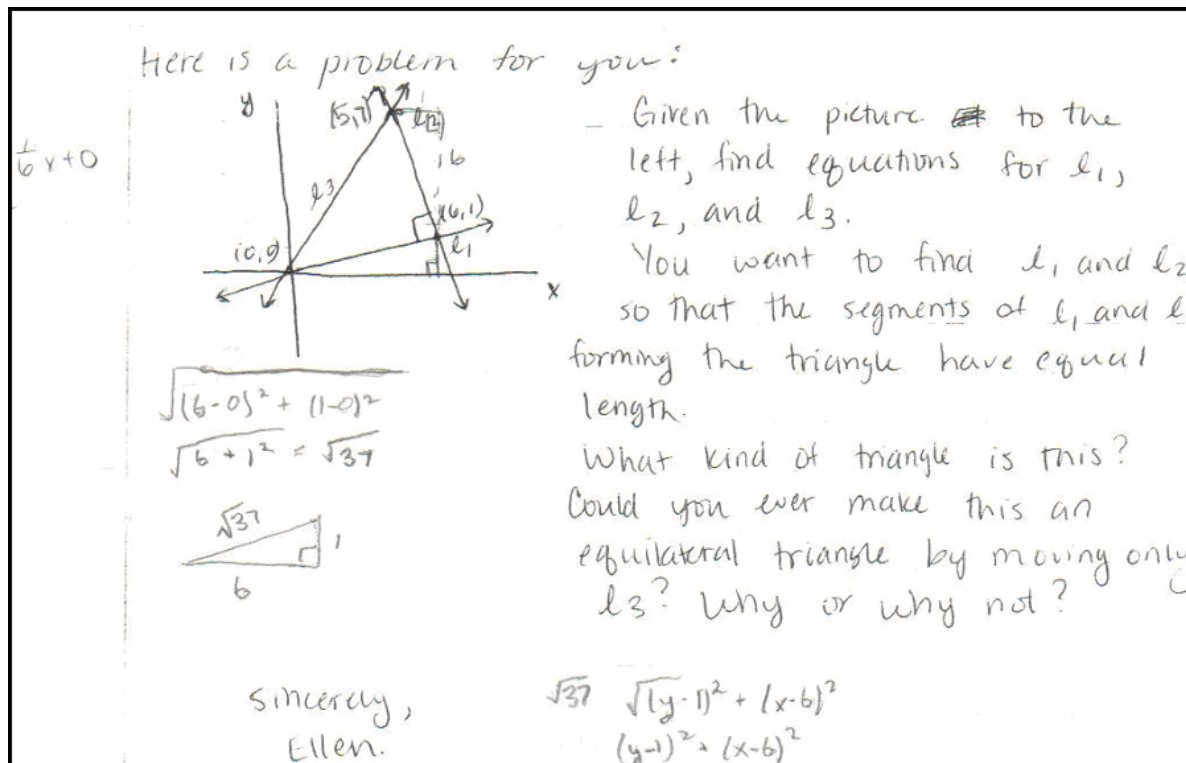 Here is a problem for you:
y
(5,7)
l2
Given the picture to the
left, find equations for l1,
l2, and l3.
1/6 x+0
l3
6
(6,1)
l1
(0,0)
x
You want to find l1 and l2
so that the segments of l1 and l
forming the triangle have equal
length.
√(6-0)² + (1-0)²
√6 + 1² = √37
What kind of triangle is this?
Could you ever make this an
equilateral triangle by moving only
l3? Why or why not?
√37
1
6
Sincerely,
Ellen.
√37 √(y-1)² + (x-6)²
(y-1)² + (x-6)²